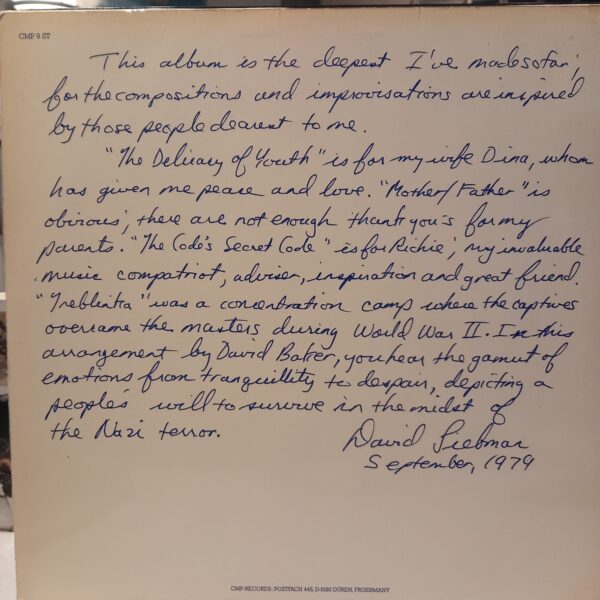 CMP 9 ST
This album is the deepest I've made so far;
for the compositions and improvisations are inspired
by those people dearest to me.
"The Delicacy of Youth" is for my wife Dina, whom
has given me peace and love. "Mother/Father" is
obvious; there are not enough thank you's for my
parents. "The Code's Secret Code" is for Richie; my invaluable
music compatriot, adviser, inspiration and great friend.
"Treblinka" was a concentration camp where the captives
overcame the masters during World War II. In this
arrangement by David Baker, you hear the gamut of
emotions from tranquillity to despair, depicting a
people's will to survive in the midst of
the Nazi terror.
David Liebman
September, 1979
CMP-RECORDS: POSTFACH 445, D-5160 DÜREN, FRGERMANY